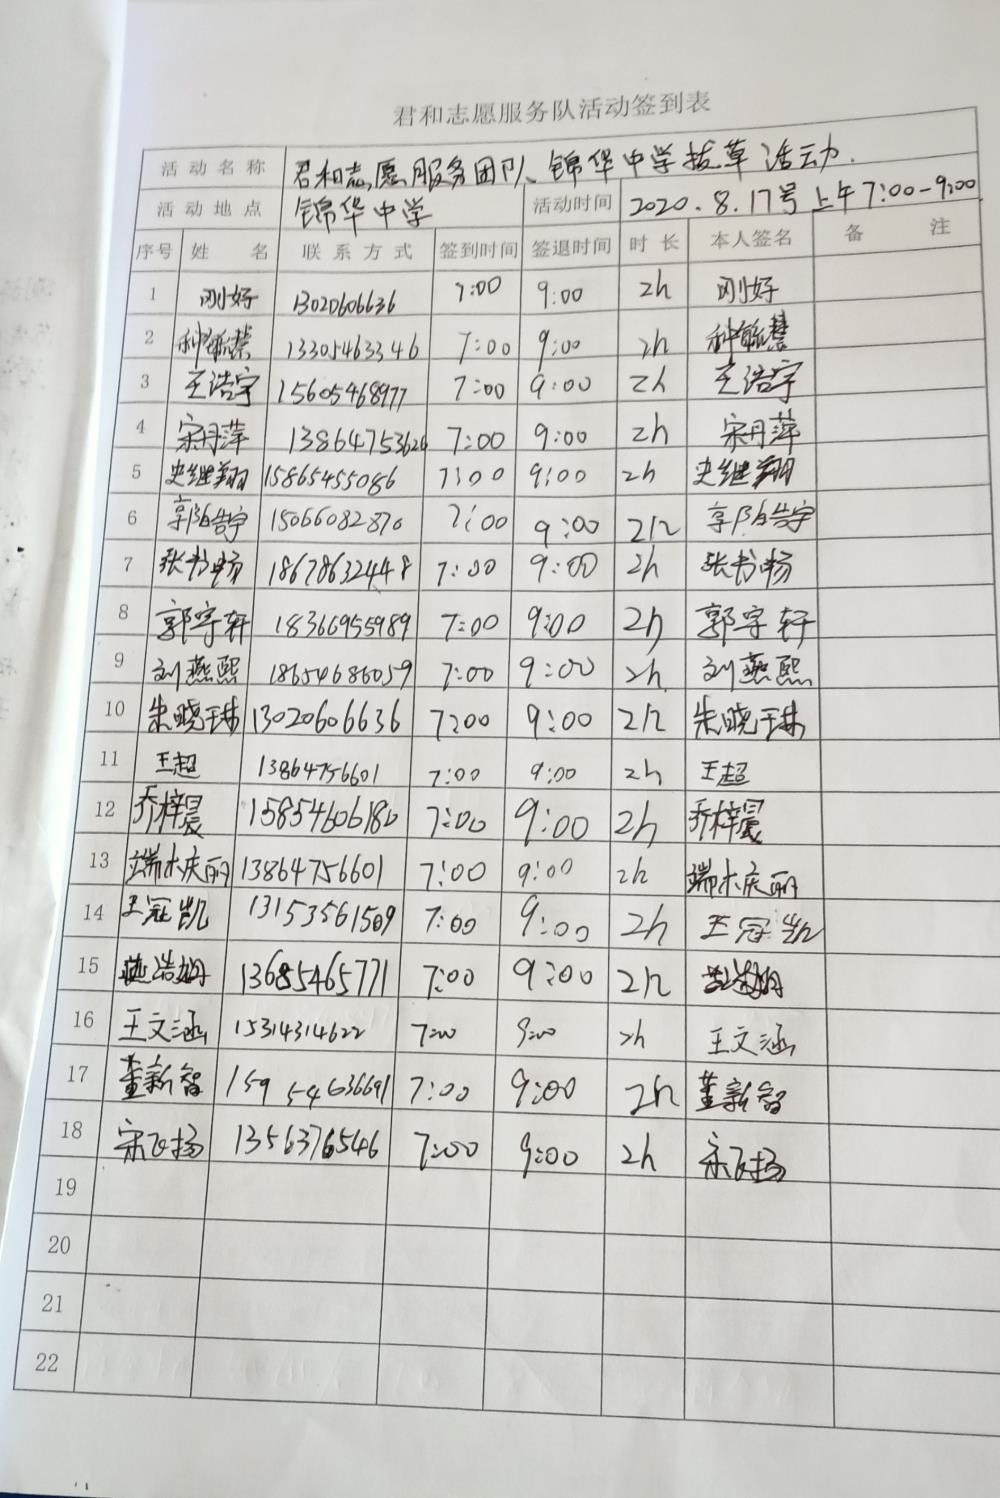 君和志愿服务队活动签到表
活动名称 君和志愿服务团队、锦华中学拔草活动.
活动地点 锦华中学 活动时间 2020.8.17号上午7:00-9:00
序号 姓名 联系方式 签到时间 签退时间 时长 本人签名 备注
1 刚好 13020606636 7:00 9:00 2h 刚好
2 种毓慧 13305463346 7:00 9:00 2h 种毓慧
3 王浩宇 15605468977 7:00 9:00 2h 王浩宇
4 宋丹萍 13864753624 7:00 9:00 2h 宋丹萍
5 史继翔 15865455086 7:00 9:00 2h 史继翔
6 15066082870 7:00 9:00 2h
7 张书畅 18678632448 7:00 9:00 2h 张书畅
8 郭宇轩 18366955989 7:00 9:00 2h 郭宇轩
9 刘燕熙 18654686059 7:00 9:00 2h 刘燕熙
10 朱晓琳 13020606636 7:00 9:00 2h 朱晓琳
11 王超 13864756601 7:00 9:00 2h 王超
12 乔梓晨 15854606180 7:00 9:00 2h 乔梓晨
13 端木庆丽 13864756601 7:00 9:00 2h 端木庆丽
14 王冠凯 13153561509 7:00 9:00 2h 王冠凯
15 13685465771 7:00 9:00 2h
16 王文涵 15314314622 7:00 9:00 2h 王文涵
17 董新智 15954636691 7:00 9:00 2h 董新智
18 宋飞扬 1356376546 7:00 9:00 2h 宋飞扬
19
20
21
22